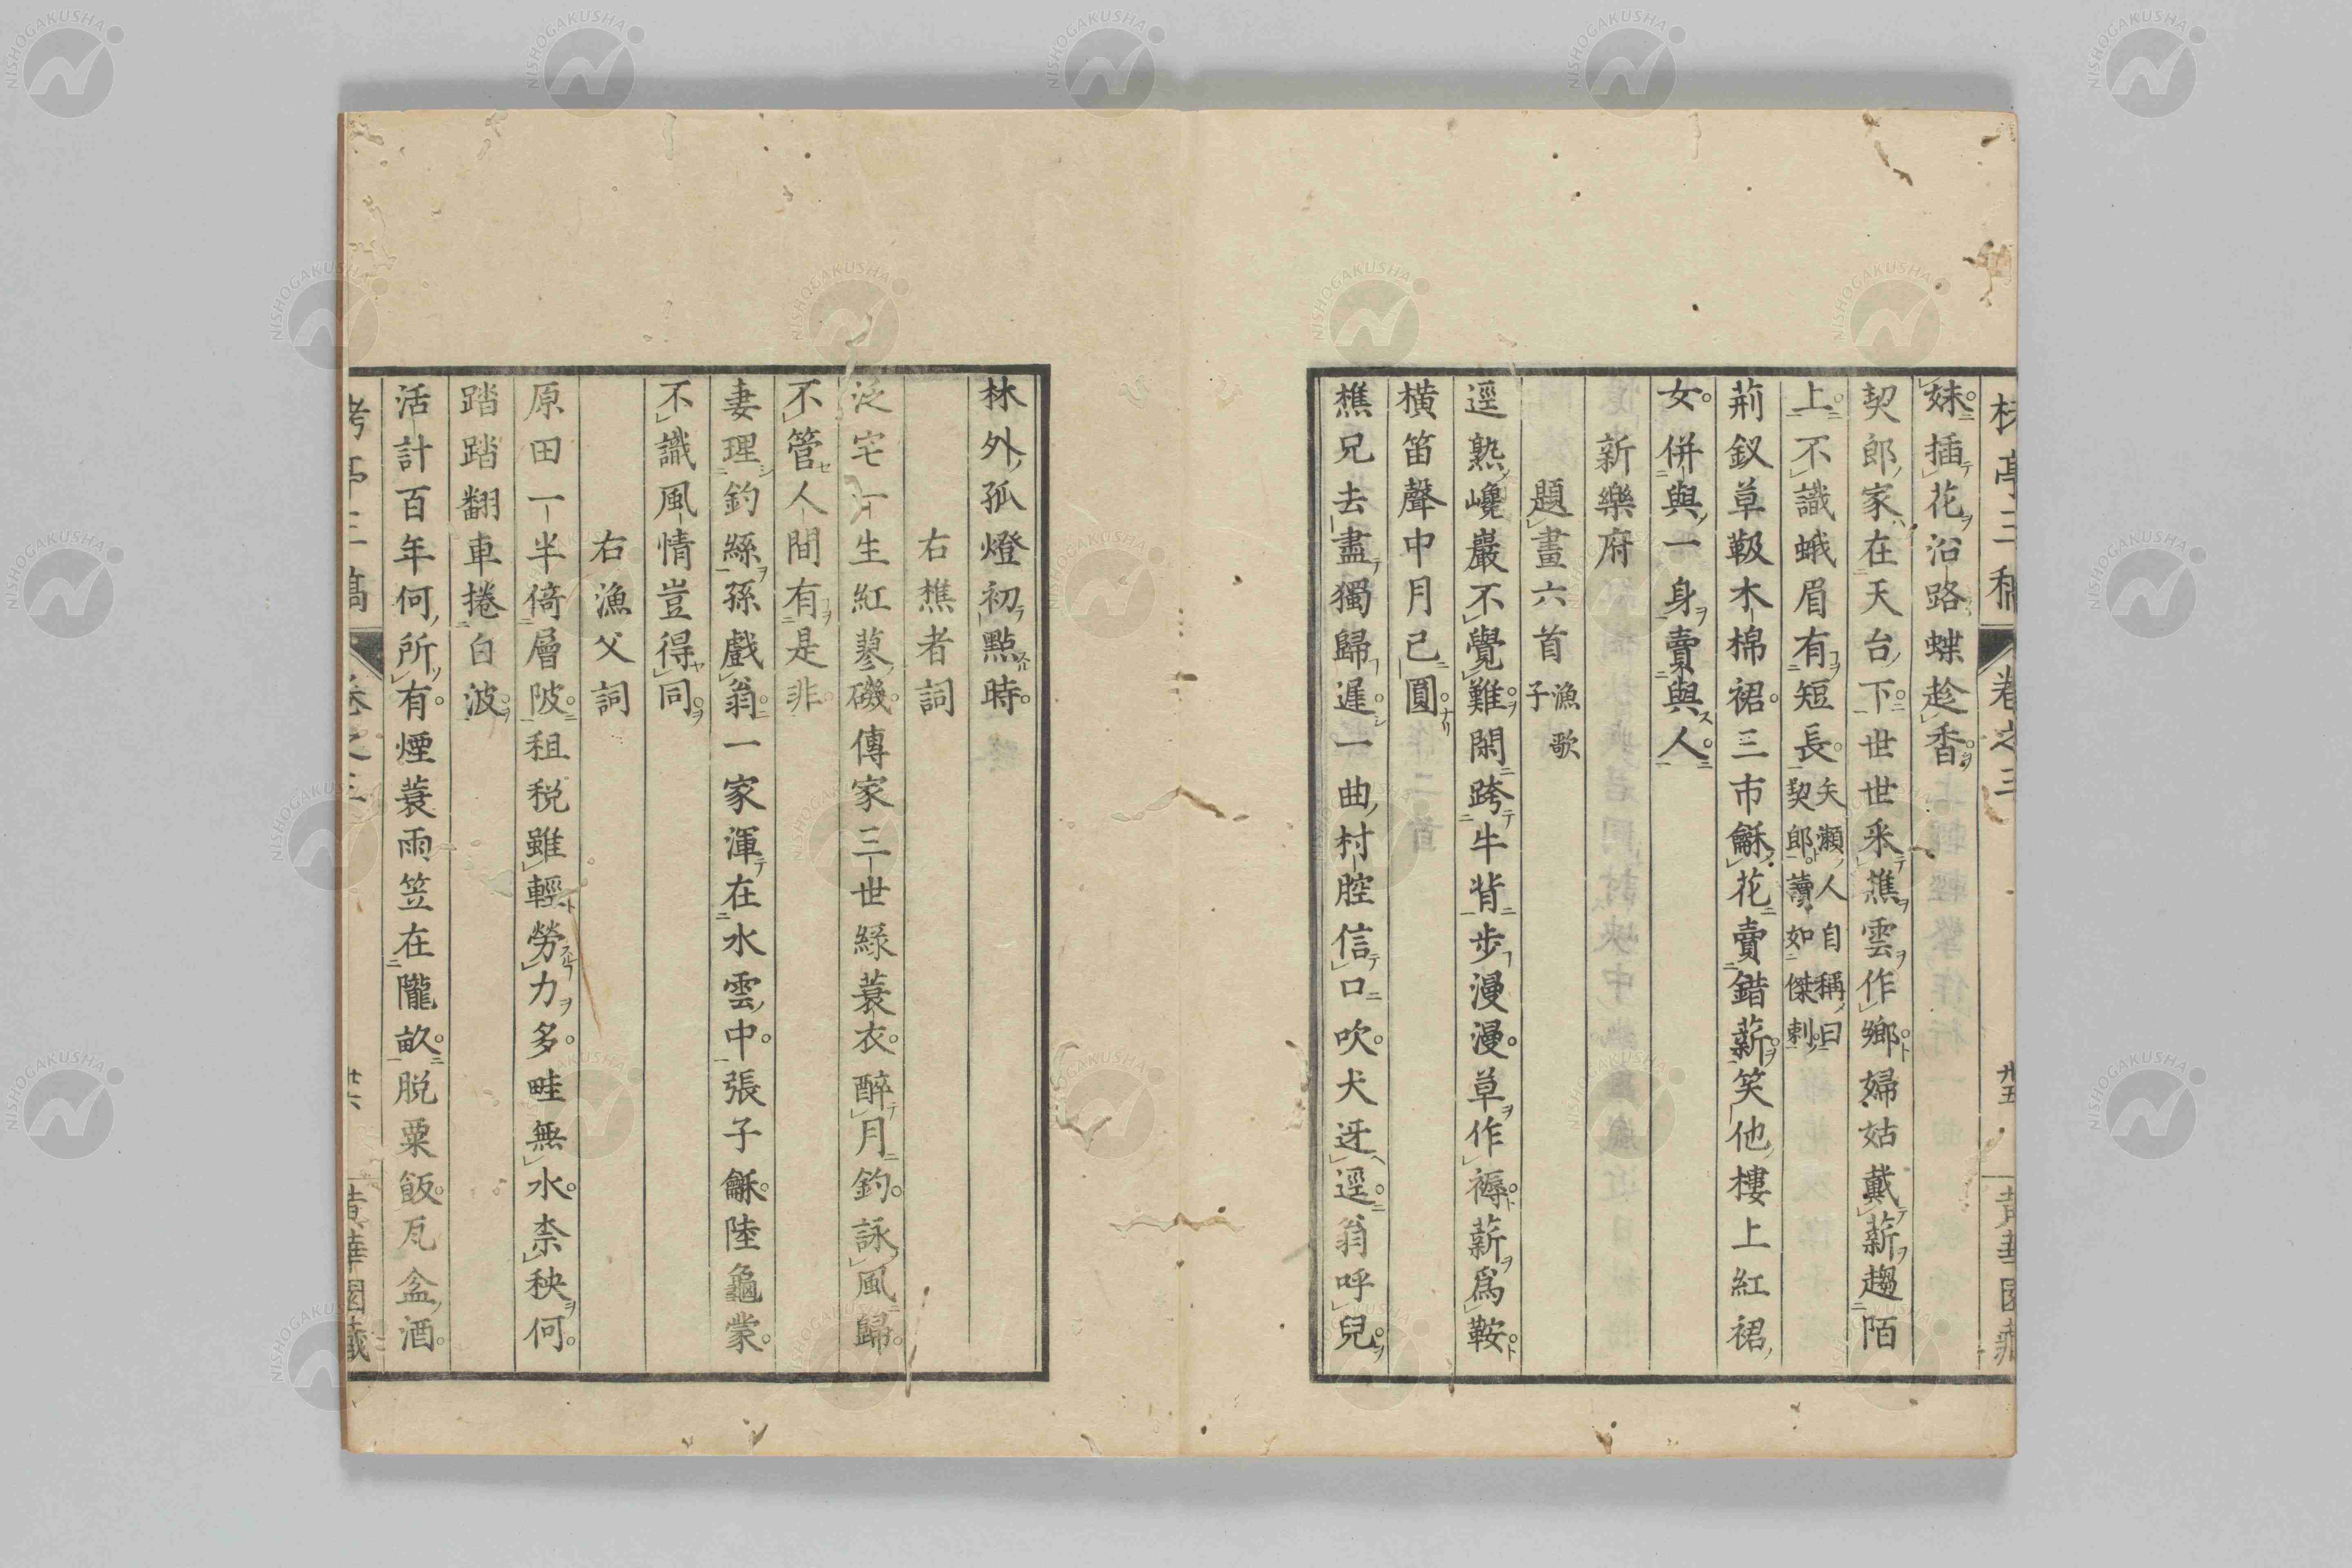 妹插花沿路蝶趁香
契郎家在天台下世世釆樵雲作鄉婦姑戴薪趨陌
上不識蛾眉有短長矢瀨人自稱曰契郎讀如傑刺
荊釵草靸木棉裙三市龢花賣錯薪笑他樓上紅裙
女併與一身賣與人
新樂府
題畫六首漁歌子
逕熟巉巖不覺難閑跨牛背步漫漫草作褥薪爲鞍
橫笛聲中月已圓
樵兄去盡獨歸遲一曲村腔信口吹犬迓逕翁呼兒
林外孤燈初點時
右樵者詞
泛宅一生紅蓼磯傳家三世綠蓑衣醉月釣詠風歸
不管人間有是非
妻理釣絲孫戲翁一家渾在水雲中張子龢陸龜蒙
不識風情豈得同
右漁父詞
原田一半倚層陂租稅雖輕勞力多畦無水柰秧何
踏踏翻車捲白波
活計百年何所有煙蓑雨笠在隴畝脱粟飯瓦盆酒
NISHOGAKUSHA